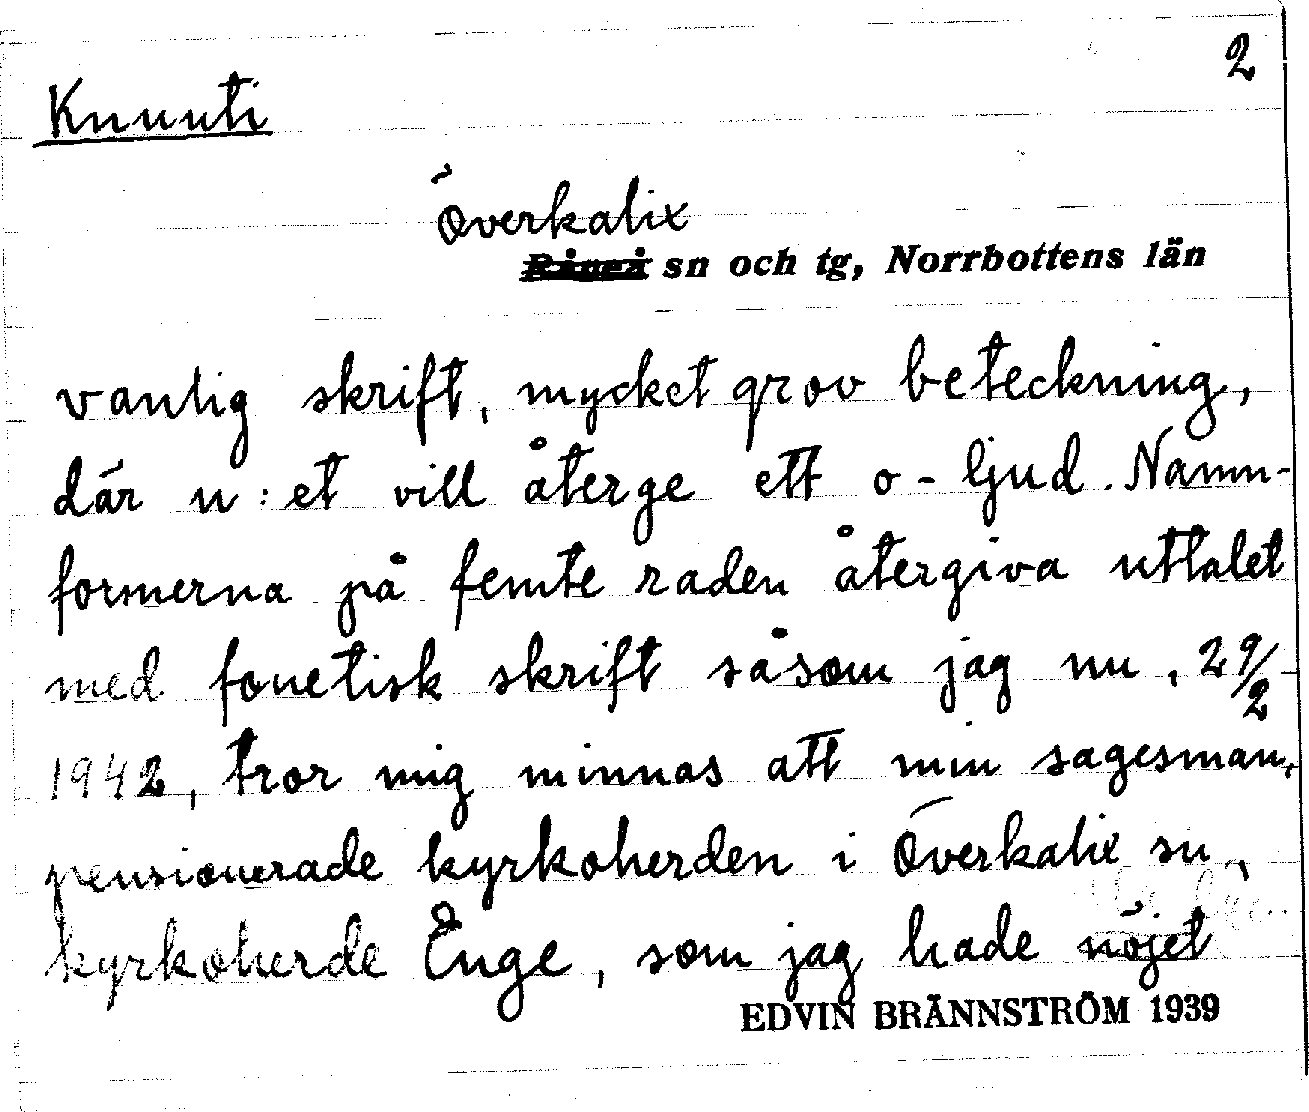 2
Knuuti
Överkalix
Råneå sn och tg, Norrbottens län
vanlig skrift, mycket grov beteckning,
där u:et vill återge ett o-ljud. Namn-
formerna på femte raden återgiva uttalet
med fonetisk skrift såsom jag nu, 29/2
1942, tror mig minnas att min sagesman,
pensionerade kyrkoherden i Överkalix sn,
kyrkoherde Enge, som jag hade nöjet
EDVIN BRÄNNSTRÖM 1939